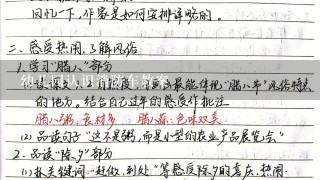 回忆一下，作家是如何安排详略的。
二、感受热闹，了解风俗
1. 学习"腊八"部分
最能体现"腊八节"风俗特点
的地方。结合自己过年的感受作批注
腊八粥：食材多 腊八蒜：色味双美
(2) 品读句子"这不是粥，而是小型的农业产品展览会"
2. 品读"除夕"部分
(1) 抓关键词，"赶做，到处"等感受除夕的喜庆、热闹